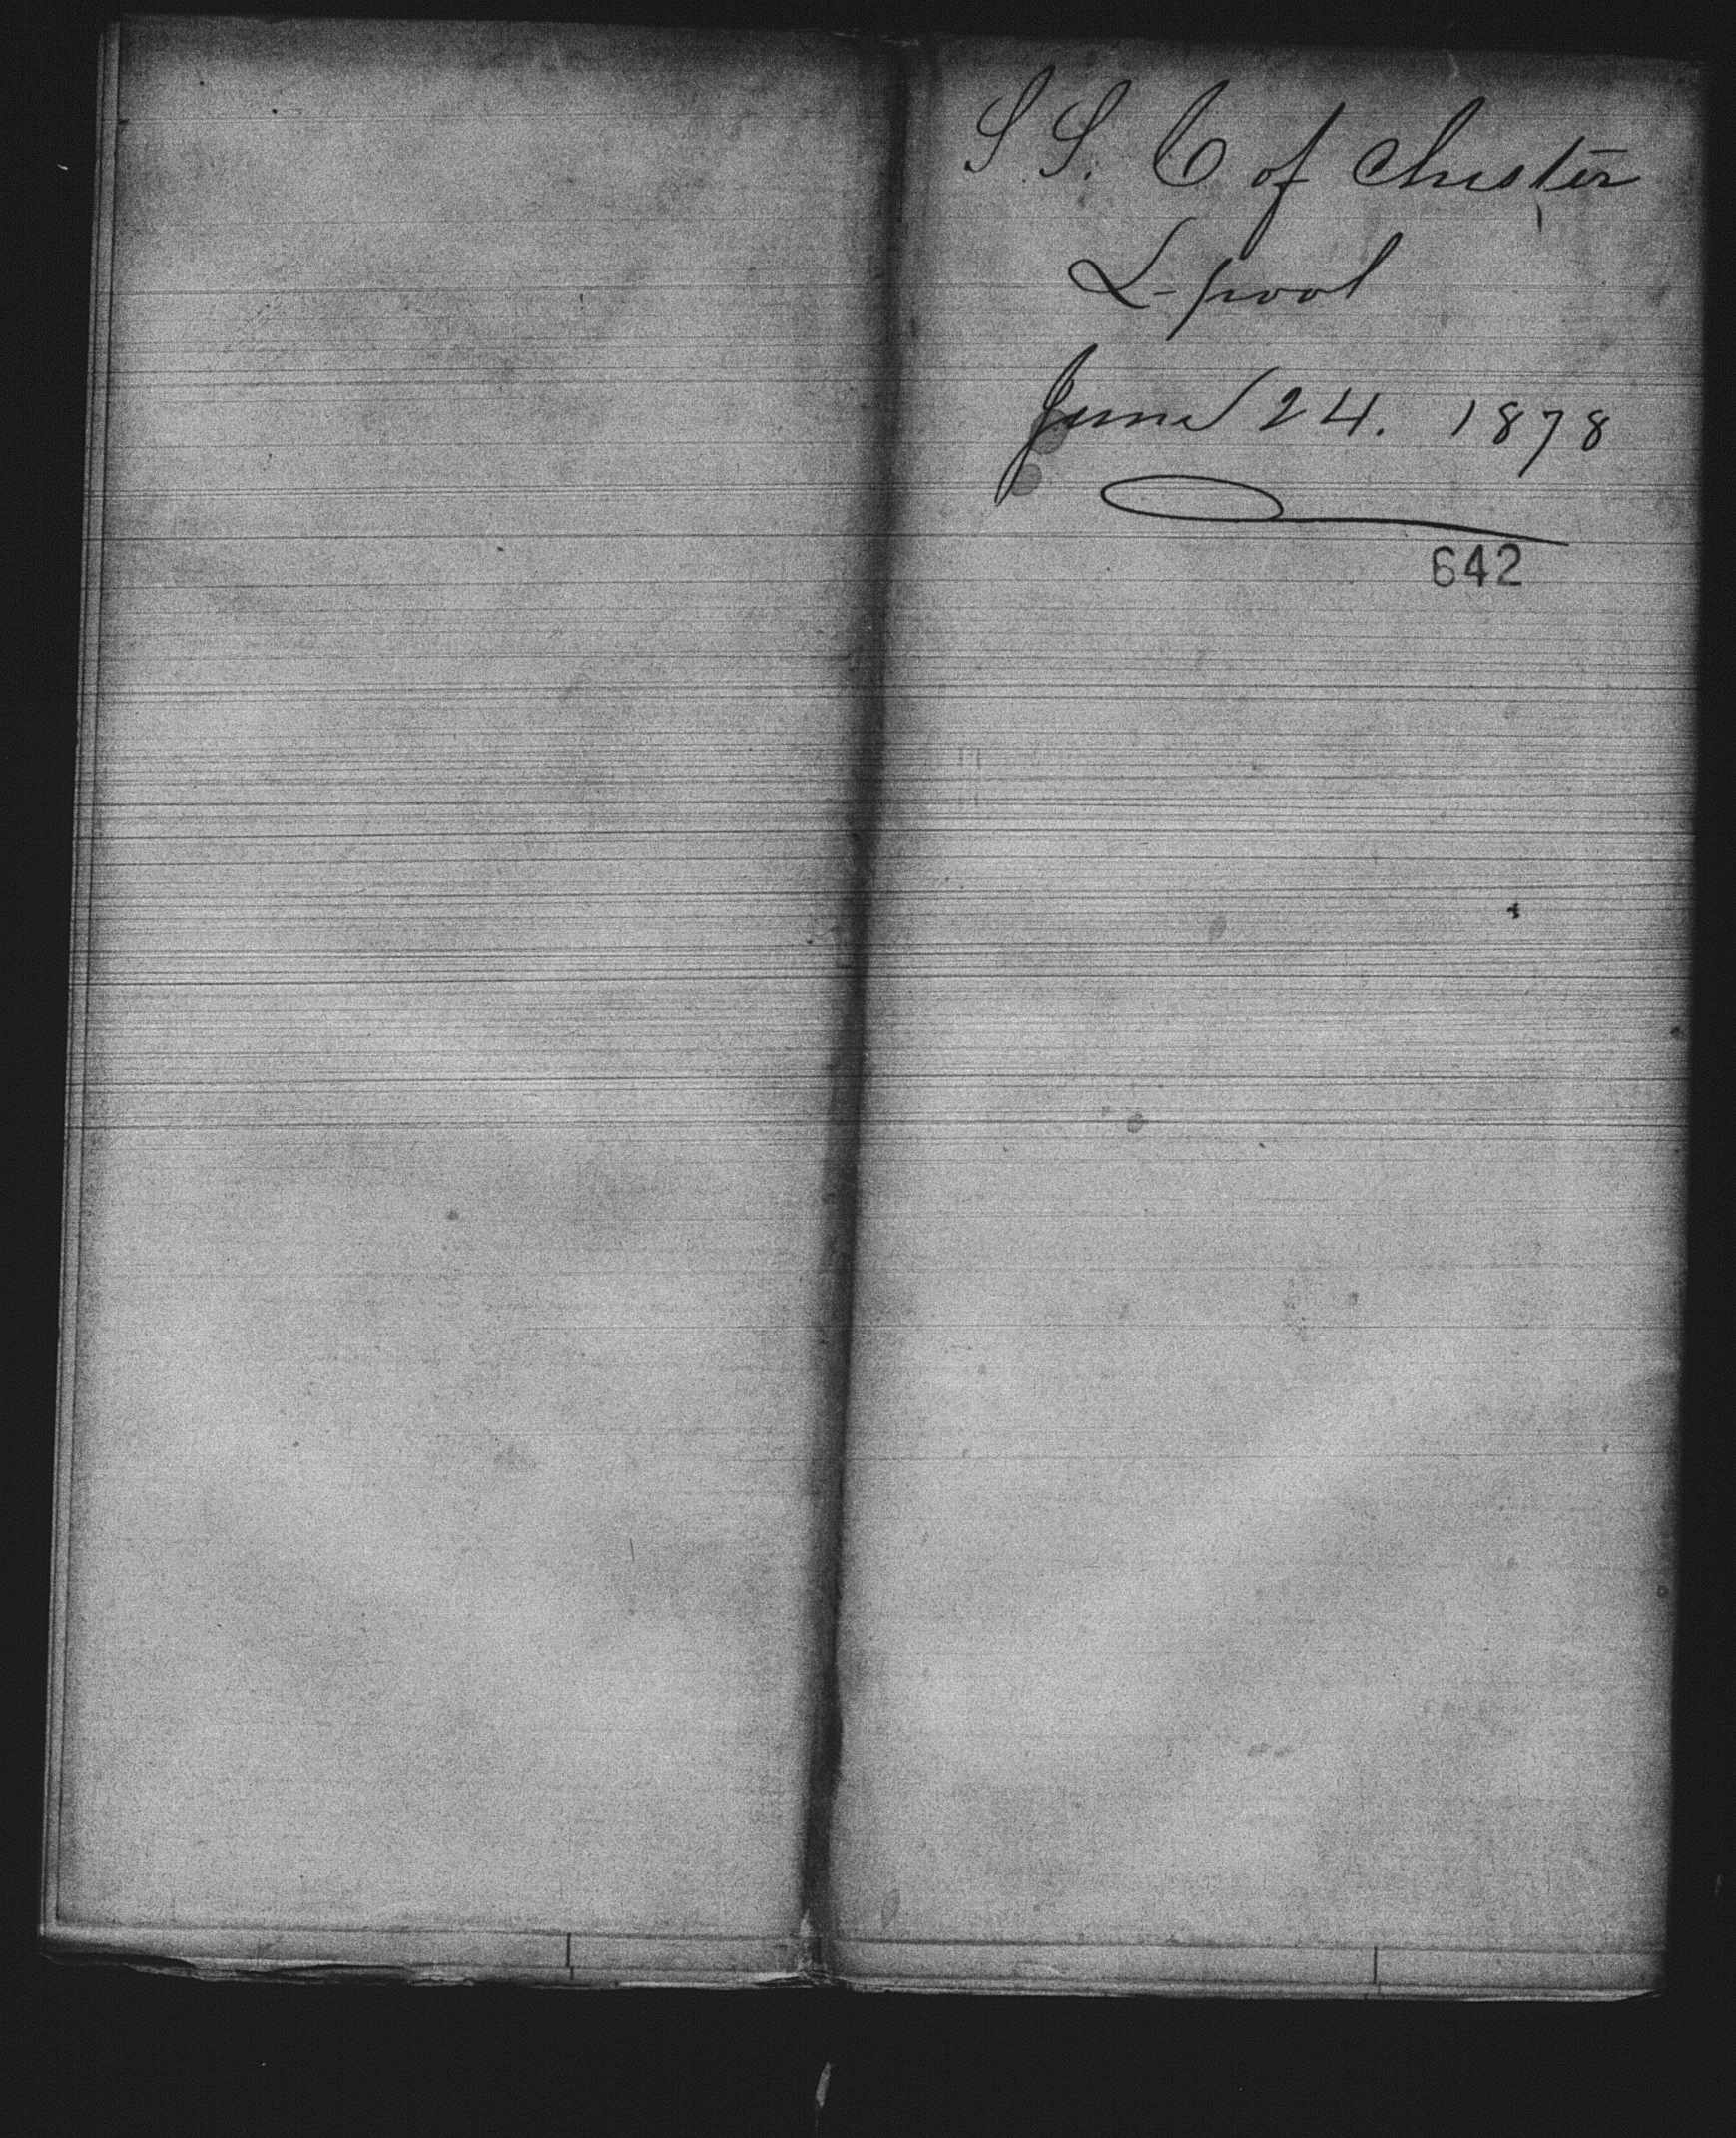 S.S. C of Chester
L-pool
June 24. 1878
642